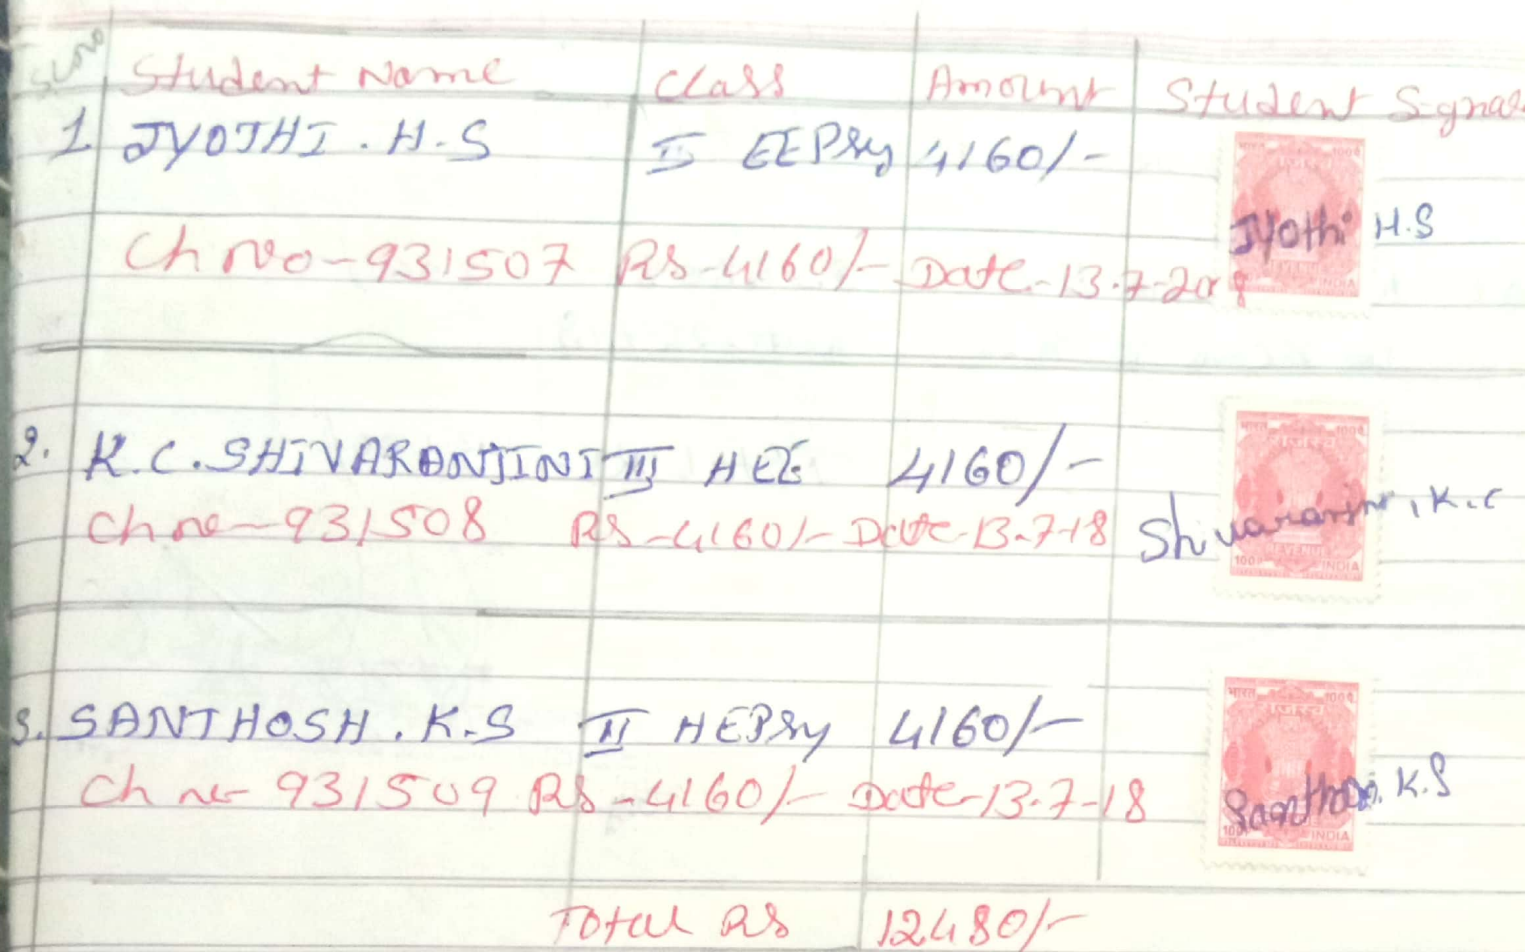 Sl no Student Name Class Amount Student Signat
1 JYOTHI . H.S II EEPSy 4160/-
Jyothi H.S
Ch No - 931507 RS - 4160/- Date - 13.7-2018
INDIA
2. K.C. SHIVARANJINI III HEE 4160/-
भारत 100
राजस्व
Ch no - 931508 RS - 4160/- Date - 13-7-18 Shivaranjini, K.C
REVENUE
100 INDIA
भारत 100
राजस्व
3. SANTHOSH . K.S II HEPSy 4160/-
Ch no - 931509 RS - 4160/- Date - 13.7-18 Santhosh. K.S
100 INDIA
Total RS 12480/-